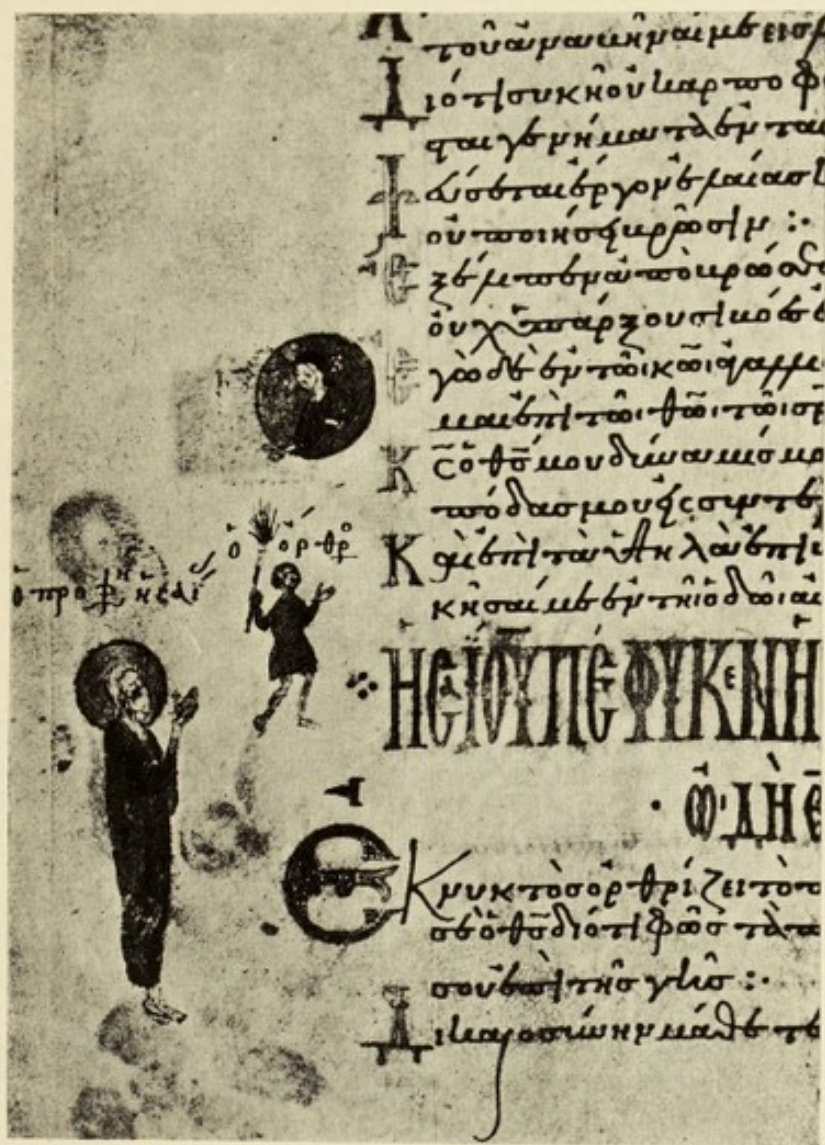 τοῦ ἀναβῆναί με εἰς
Διότι συκῆ οὐ καρποφ
σται γενήματα ἐν ταῖ
Ψεύσεται ἔργον ἐλαίας
οὐ ποιήσει βρῶσιν :·
Ἐξέλιπεν ἀπὸ βρώσε
οὐχ ὑπάρχουσι βόες ἐ
Ἐγὼ δὲ ἐν τῶι κ̅ω̅ι ἀγαλλι
μαι ἐπὶ τῶι θ̅ω̅ι τῶι σ̅ρ̅
Κ̅ς̅ ὁ θ̅ς̅ μου δύναμίς μο
πόδας μου εἰς συντε
Καὶ ἐπὶ τὰ ὑψηλὰ ἐπι
κῆσαί με ἐν τῆι ὠδῆι α
ὁ ὄρθρ
ὁ προφή ησαί
ΗΣΑΪΟΥ ΠΕΦΥΚΕΝ Η
· ὨΔῊ Ε̅
Ἐκ νυκτὸς ὀρθρίζει τὸ π
σε ὁ θ̅ς̅ διότι φῶς τὰ π
σου ἐπὶ τῆς γῆς :·
Δικαιοσύνην μάθετε